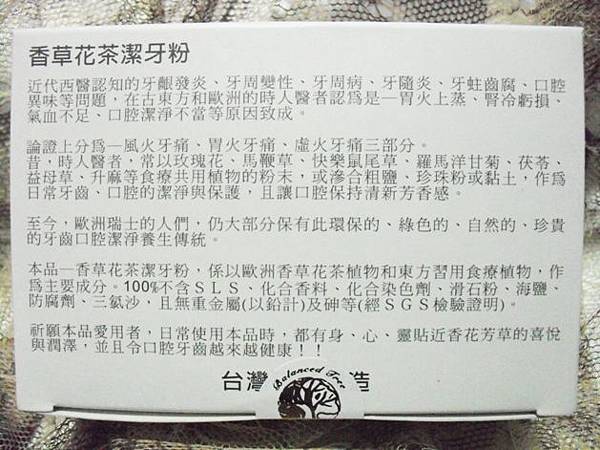 香草花茶潔牙粉
近代西醫認知的牙齦發炎、牙周變性、牙周病、牙隨炎、牙蛀齒腐、口腔
異味等問題，在古東方和歐洲的時人醫者認為是—胃火上蒸、腎冷虧損、
氣血不足、口腔潔淨不當等原因致成。
論證上分為—風火牙痛、胃火牙痛、虛火牙痛三部分。
昔，時人醫者，常以玫瑰花、馬鞭草、快樂鼠尾草、羅馬洋甘菊、茯苓、
益母草、升麻等食療共用植物的粉末，或滲合粗鹽、珍珠粉或黏土，作為
日常牙齒、口腔的潔淨與保護，且讓口腔保持清新芳香感。
至今，歐洲瑞士的人們，仍大部分保有此環保的、綠色的、自然的、珍貴
的牙齒口腔潔淨養生傳統。
本品—香草花茶潔牙粉，係以歐洲香草花茶植物和東方習用食療植物，作
為主要成分。100%不含SLS、化合香料、化合染色劑、滑石粉、海鹽、
防腐劑、三氯沙，且無重金屬(以鉛計)及砷等(經SGS檢驗證明)。
祈願本品愛用者，日常使用本品時，都有身、心、靈貼近香花芳草的喜悅
與潤澤，並且令口腔牙齒越來越健康！！
台灣 造
Balanced Tree